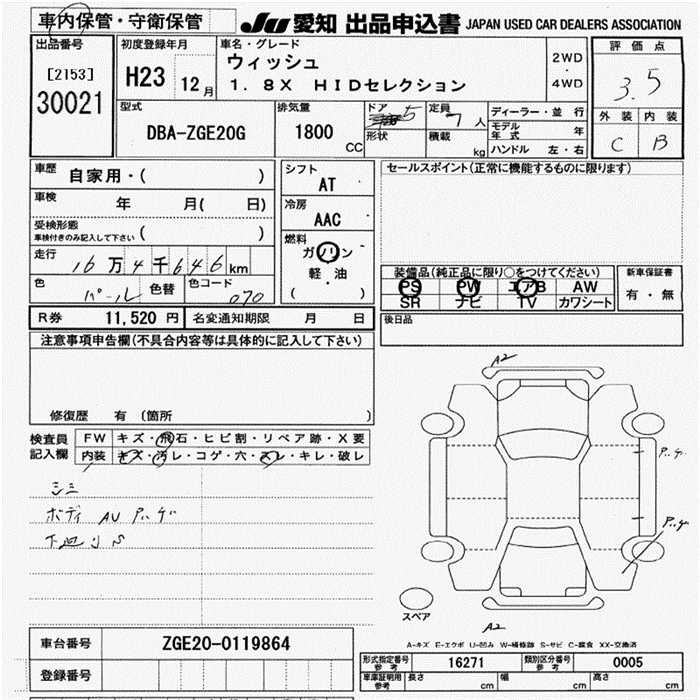 車内保管・守衛保管
JU 愛知 出品申込書 JAPAN USED CAR DEALERS ASSOCIATION
出品番号
[2153]
30021
初度登録年月
H23 12月
車名・グレード
ウィッシュ
1.8X HIDセレクション
2WD
・
4WD
評価点
3.5
外装 内装
C B
型式
DBA-ZGE20G
排気量
1800 CC
ドア 5
形状
定員 7人
積載 kg
ディーラー・並行
モデル年式 年
ハンドル 左・右
車歴
自家用・( )
車検
年 月( 日)
受検形態
車検付きのみ記入して下さい ( )
走行
16万4千646km
色 パール 色替 色コード 070
シフト
AT
冷房
AAC
燃料
ガソリン
軽・油
( )
セールスポイント(正常に機能するものに限ります)
装備品(純正品に限り○をつけてください)
PS PW エアB AW
SR ナビ TV カワシート
新車保証書
有・無
後日品
R券 11,520円 名変通知期限 月 日
注意事項申告欄(不具合内容等は具体的に記入して下さい)
修復歴 有(箇所 )
検査員記入欄
FW キズ・飛石・ヒビ割・リペア跡・X要
内装 キズ・汚レ・コゲ・穴・スレ・キレ・破レ
シミ
ボディ AU
下廻り S
A2
A2
スペア
A-キズ E-エクボ U-凹み W-補修跡 S-サビ C-腐食 XX-交換済
車台番号 ZGE20-0119864
登録番号
型式指定番号 参考 16271 類別区分番号 参考 0005
車庫証明用 参考 長さ cm 幅 cm 高さ cm